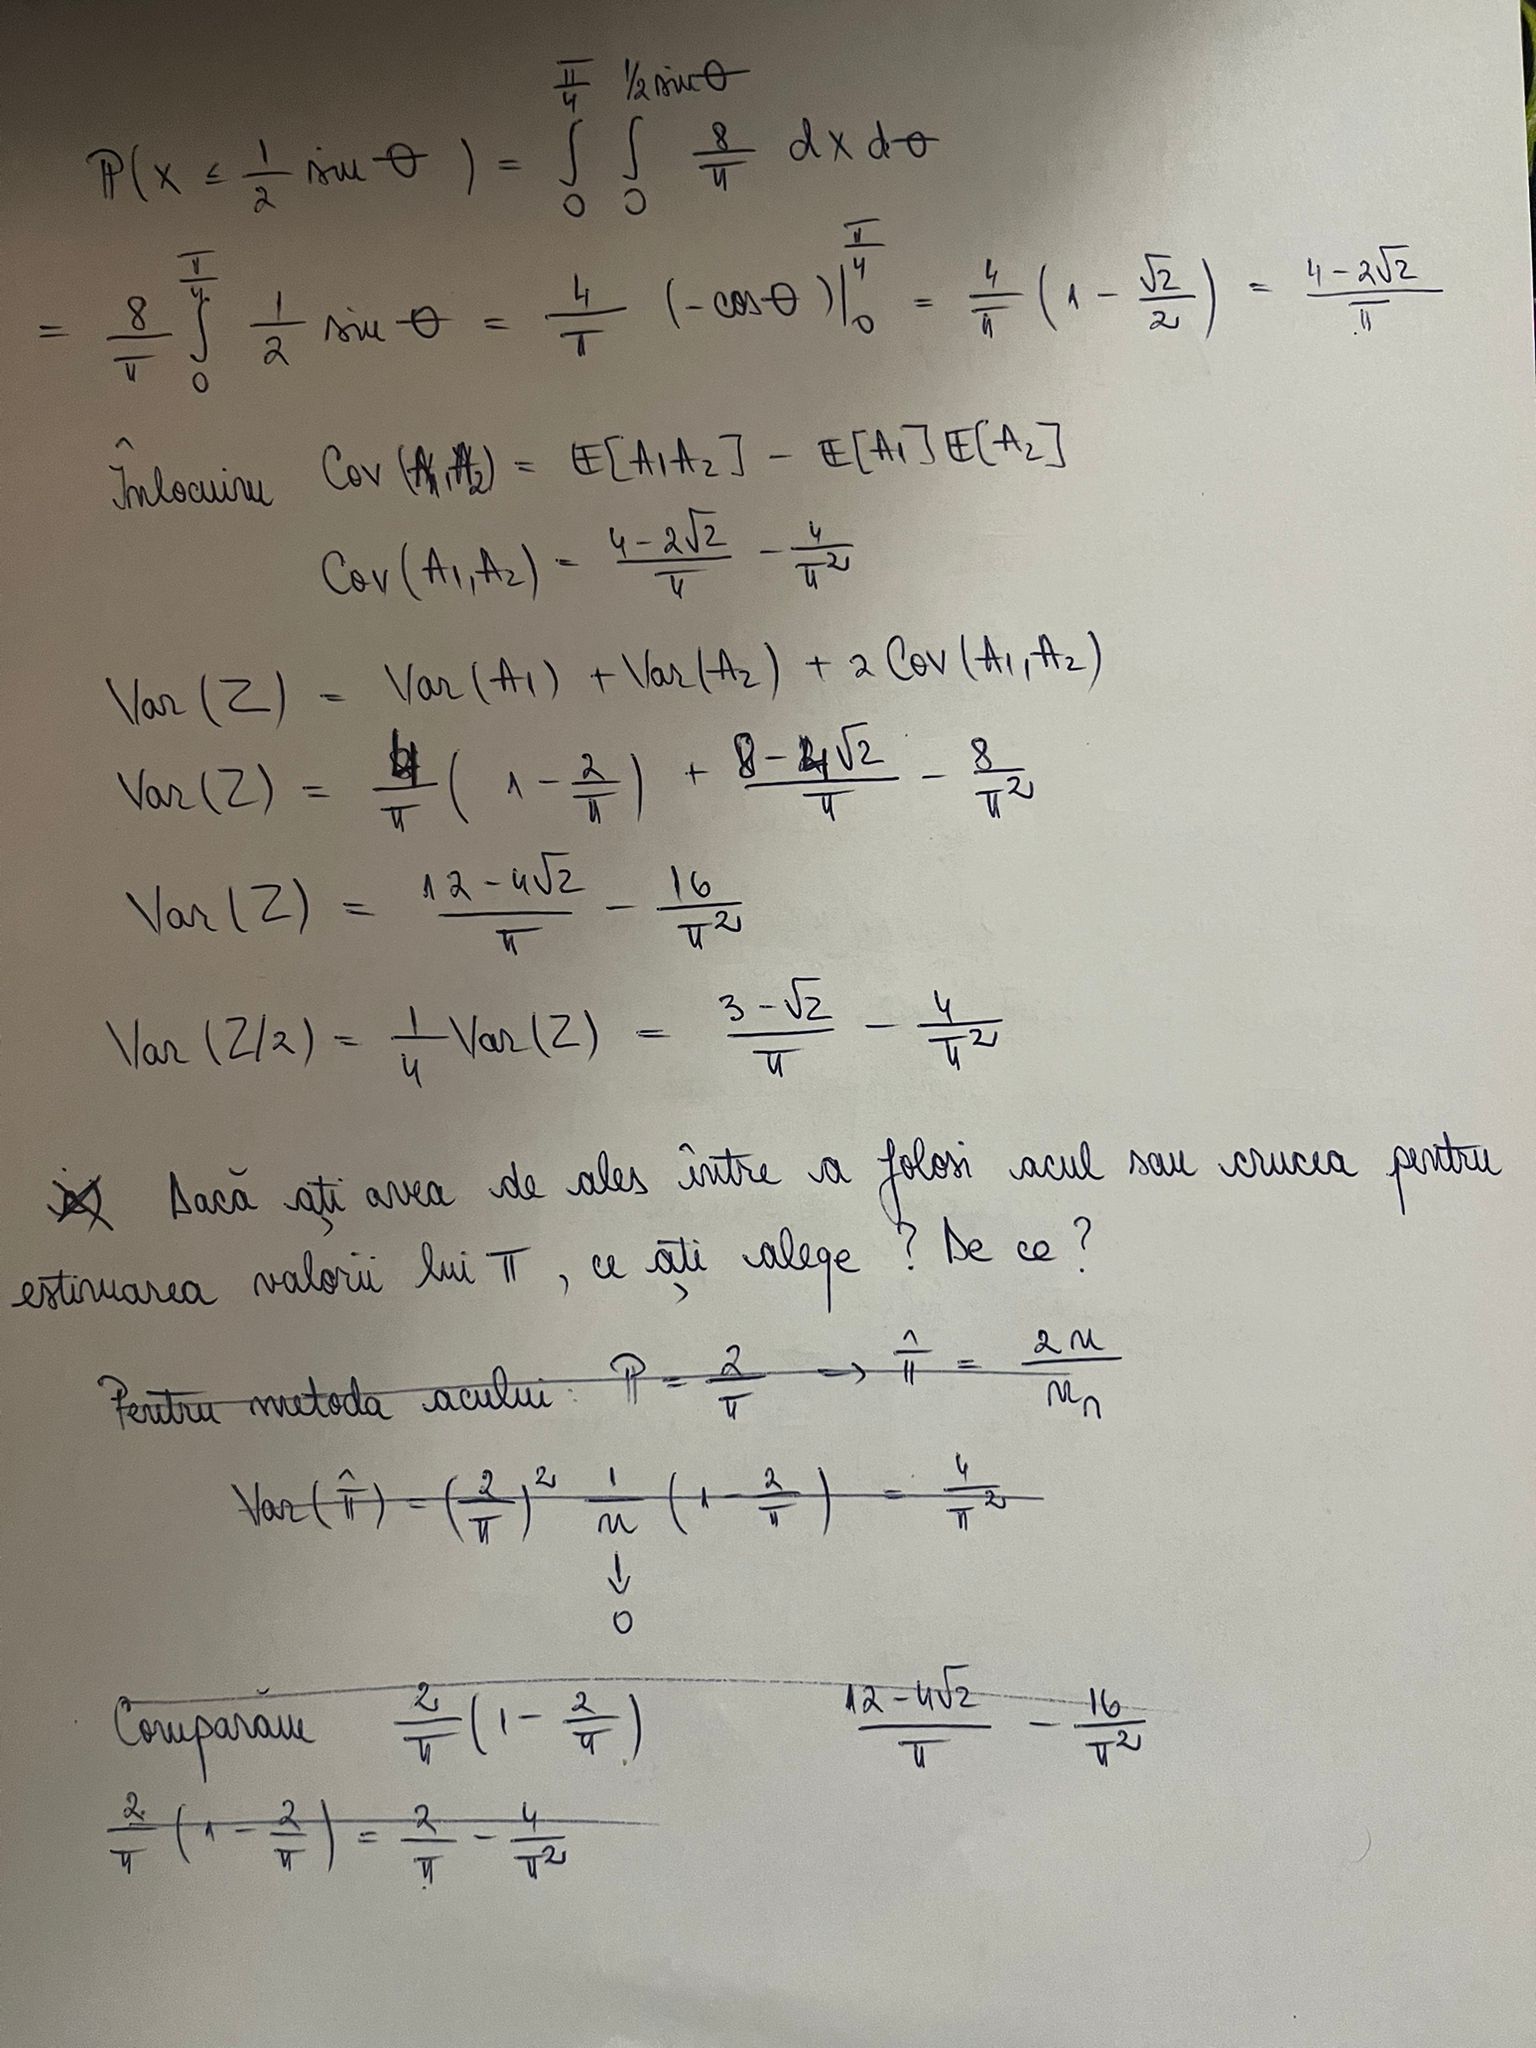 P(X ≤ 1/2 sin θ) = ∫_0^{π/4} ∫_0^{1/2 sin θ} 8/π dx dθ
= 8/π ∫_0^{π/4} 1/2 sin θ = 4/π (-cos θ)|_0^{π/4} = 4/π (1 - √2/2) = (4-2√2)/π
Înlocuim Cov(A1,A2) = E[A1A2] - E[A1]E[A2]
Cov(A1,A2) = (4-2√2)/π - 4/π²
Var(Z) = Var(A1) + Var(A2) + 2Cov(A1,A2)
Var(Z) = 4/π (1 - 2/π) + (8-4√2)/π - 8/π²
Var(Z) = (12-4√2)/π - 16/π²
Var(Z/2) = 1/4 Var(Z) = (3-√2)/π - 4/π²
Dacă ați avea de ales între a folosi acul sau crucea pentru
estimarea valorii lui π, ce ați alege? De ce?
Pentru metoda acului: P = 2/π → π̂ = 2n/n_n
Var(π̂) = (2/π)² 1/n (1 - 2/π) = 4/π²
↓
0
Comparăm 2/π (1 - 2/π) (12-4√2)/π - 16/π²
2/π (1 - 2/π) = 2/π - 4/π²